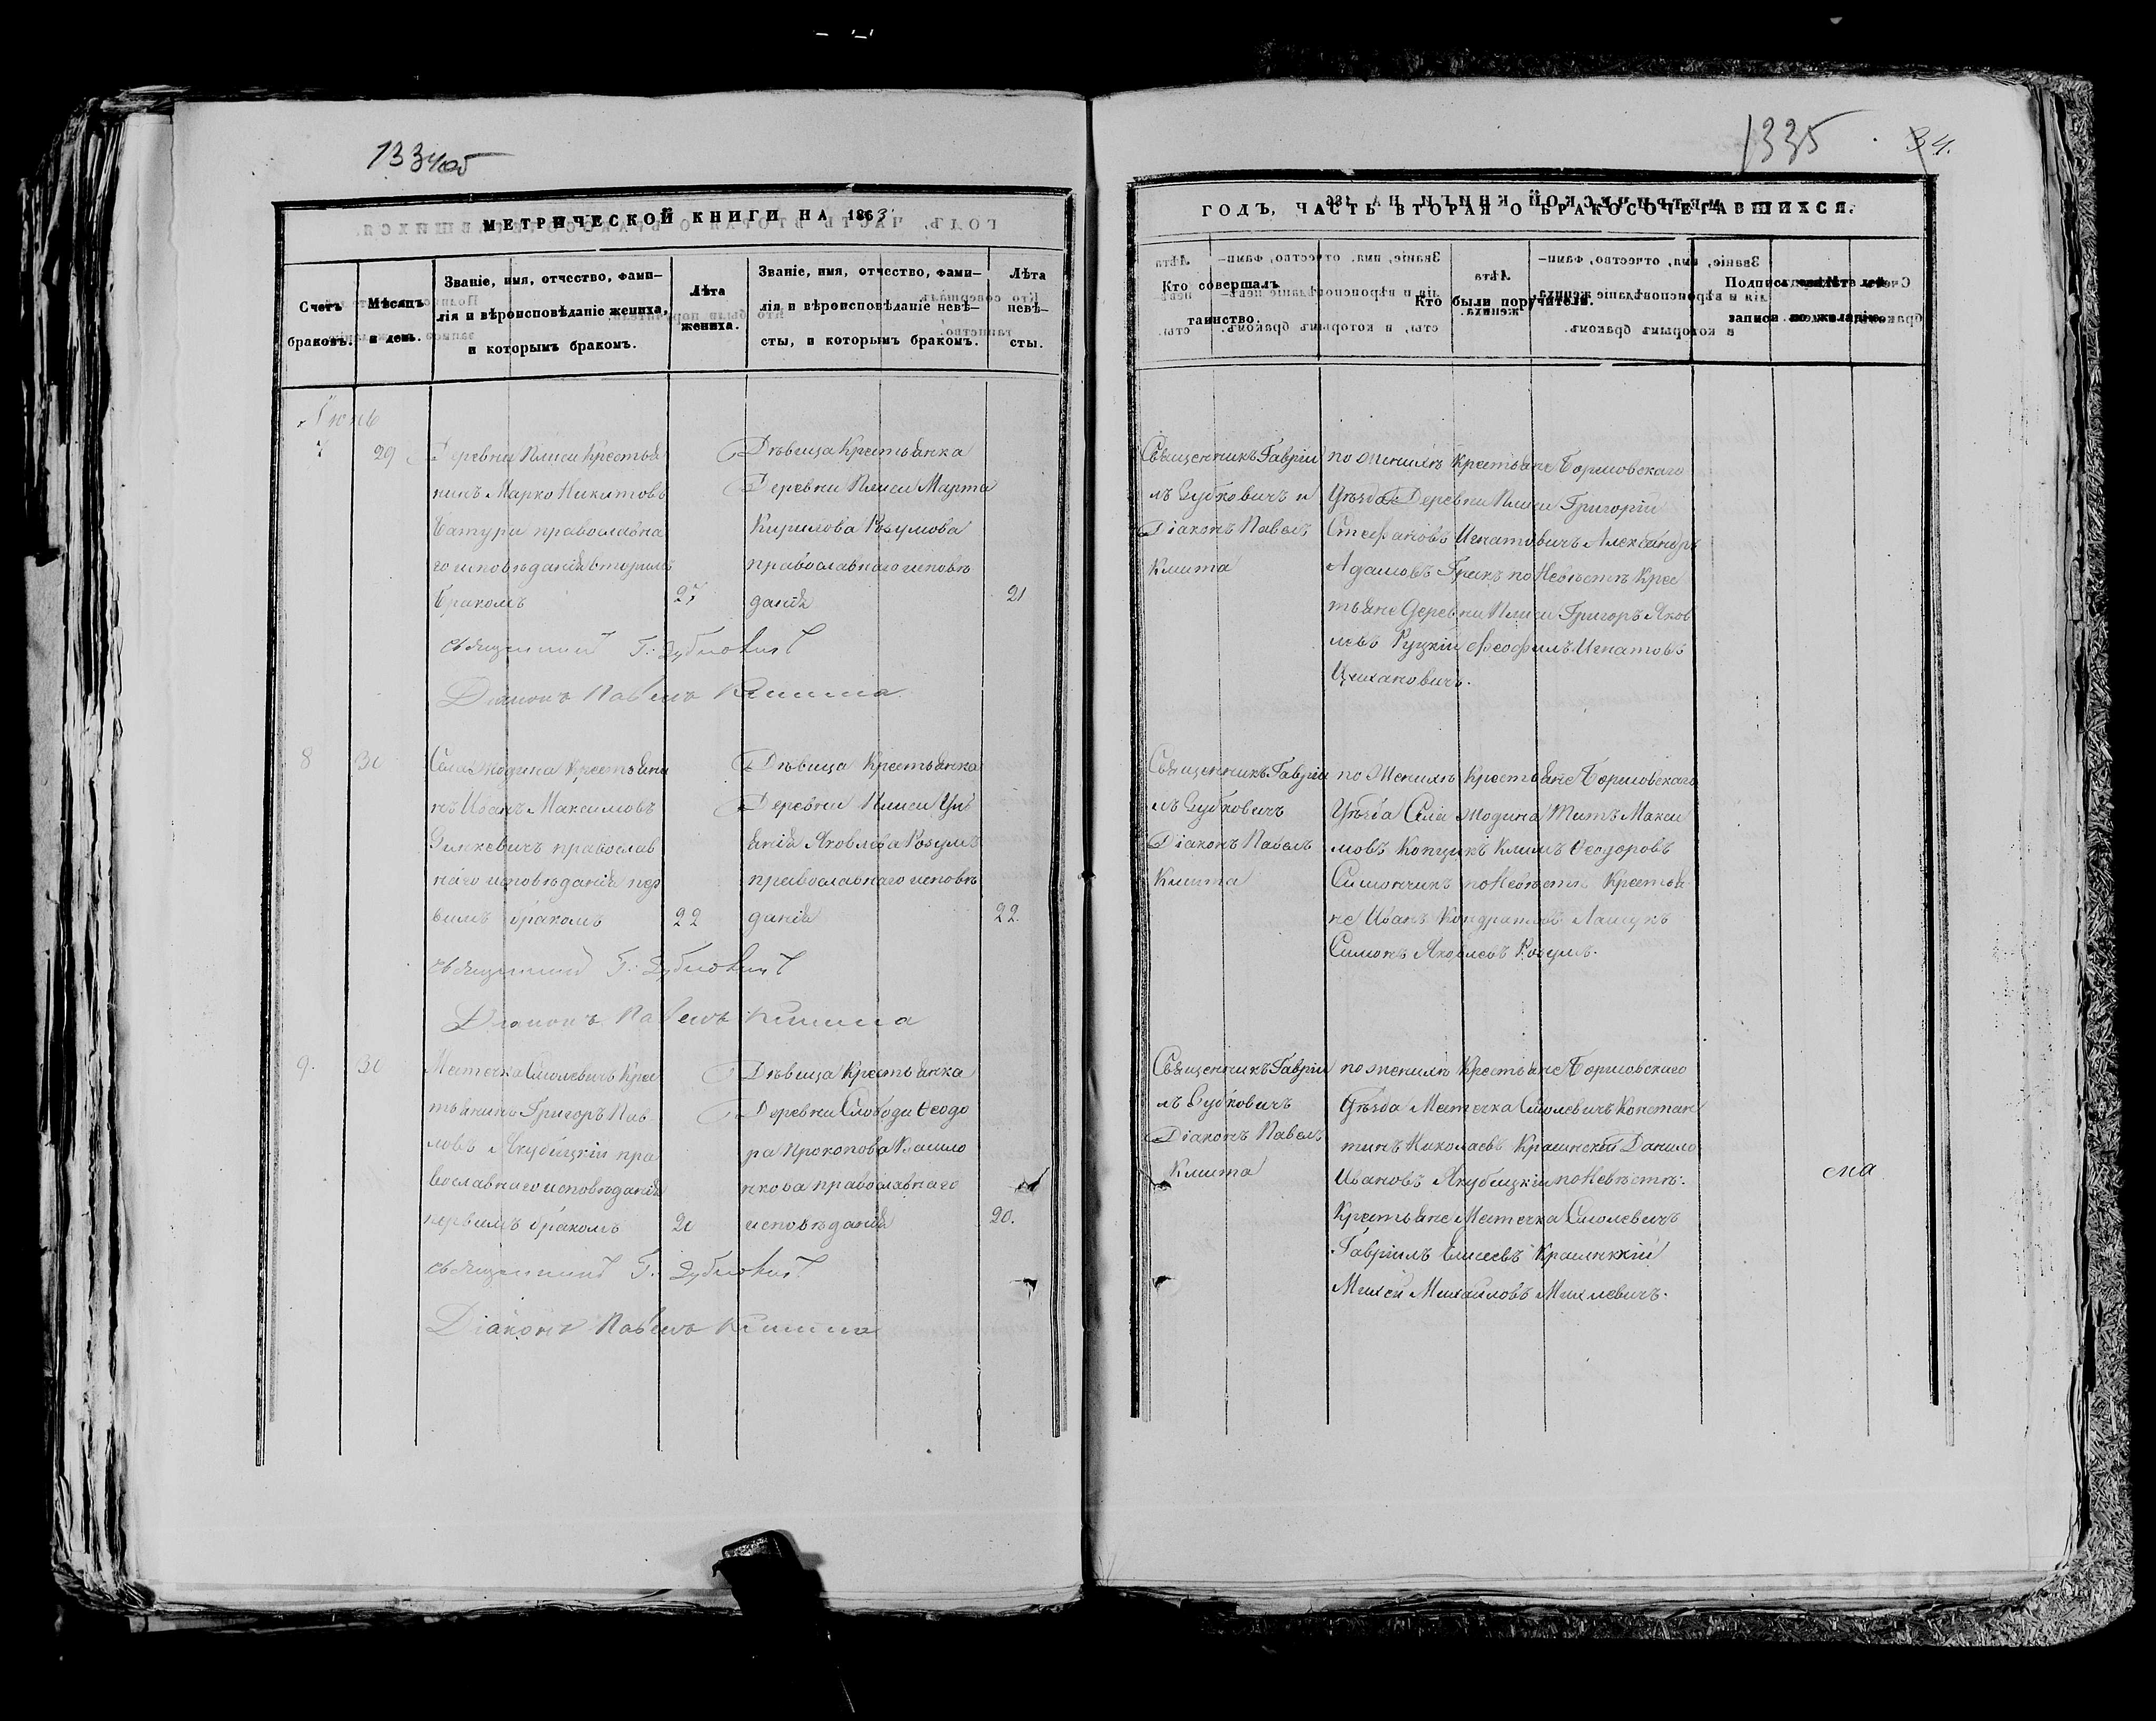 1334об
МЕТРИЧЕСКОЙ КНИГИ НА 1863
Счетъ браковъ.
Мѣсяцъ и день.
Званіе, имя, отчество, фами-
лія и вѣроисповѣданіе жениха,
и которымъ бракомъ.
Лѣта жениха.
Званіе, имя, отчество, фами-
лія и вѣроисповѣданіе невѣ-
сты, и которымъ бракомъ.
Лѣта невѣ-
сты.
Іюнь
7 29
Деревни Плиси Крестья
нинъ Марко Никитовъ
Батура православна
го исповѣданія вторымъ
бракомъ 27
Дѣвица Крестьянка
Деревни Плиси Марта
Кирилова Розумова
православнаго исповѣ
данія 21
священникъ Г. Зубковичъ
Діаконъ Павелъ Клита
8 30
Села Жодина Крестьяни
нъ Иванъ Максимовъ
православ
наго исповѣданія пер
вымъ бракомъ 22
Дѣвица Крестьянка
Деревни Плиси Уль
янія Яковлева Розумъ
православнаго исповѣ
данія 22
священникъ Г. Зубковичъ
Діаконъ Павелъ Клита
9. 30
Местечка Смолевичъ Крес
тьянинъ Григоръ Пав
ловъ Якубицкій пра
вославнаго исповѣданія
первымъ бракомъ 20
Дѣвица Крестьянка
Деревни Слободи Ѳеодо
ра Прокопова
православнаго
исповѣданія 20.
священникъ Г. Зубковичъ
Діаконъ Павелъ Клита
1335 34.
ГОДЪ, ЧАСТЬ ВТОРАЯ О БРАКОСОЧЕТАВШИХСЯ.
Кто совершалъ
таинство.
Кто были поручители.
записи по желанію.
Священникъ Гаврiи
лъ Зубковичъ и
Діаконъ Павелъ
Клита
по Женихѣ Крестьяне Борисовскаго
Уѣзда Деревни Плиси Григорій
Стефановъ Игнатовичъ Александръ
Адамовъ Грекъ по Невѣстѣ Крес
тьяне Деревни Плиси Григоръ Яков
левъ Руцкій Феофилъ Игнатовъ
Священникъ Гаврiи
лъ Зубковичъ
Діаконъ Павелъ
Клита
по Женихѣ Крестьяне Борисовскаго
Уѣзда Села Жодина Титъ Макси
мовъ Копцикъ Климъ Ѳеодоровъ
Симончикъ по Невѣстѣ Крестья
не Иванъ Кондратовъ Лащукъ
Симонъ Яковлевъ Розумъ.
Священникъ Гаврiи
лъ Зубковичъ
Діаконъ Павелъ
Клита
по Женихѣ Крестьяне Борисовскаго
Уѣзда Местечка Смолевичъ Констан
тинъ Николаевъ Данило
Ивановъ Якубицкій по Невѣстѣ:
Крестьяне Местечка Смолевичъ
Гавріилъ Елисеевъ
Михей Михайловъ